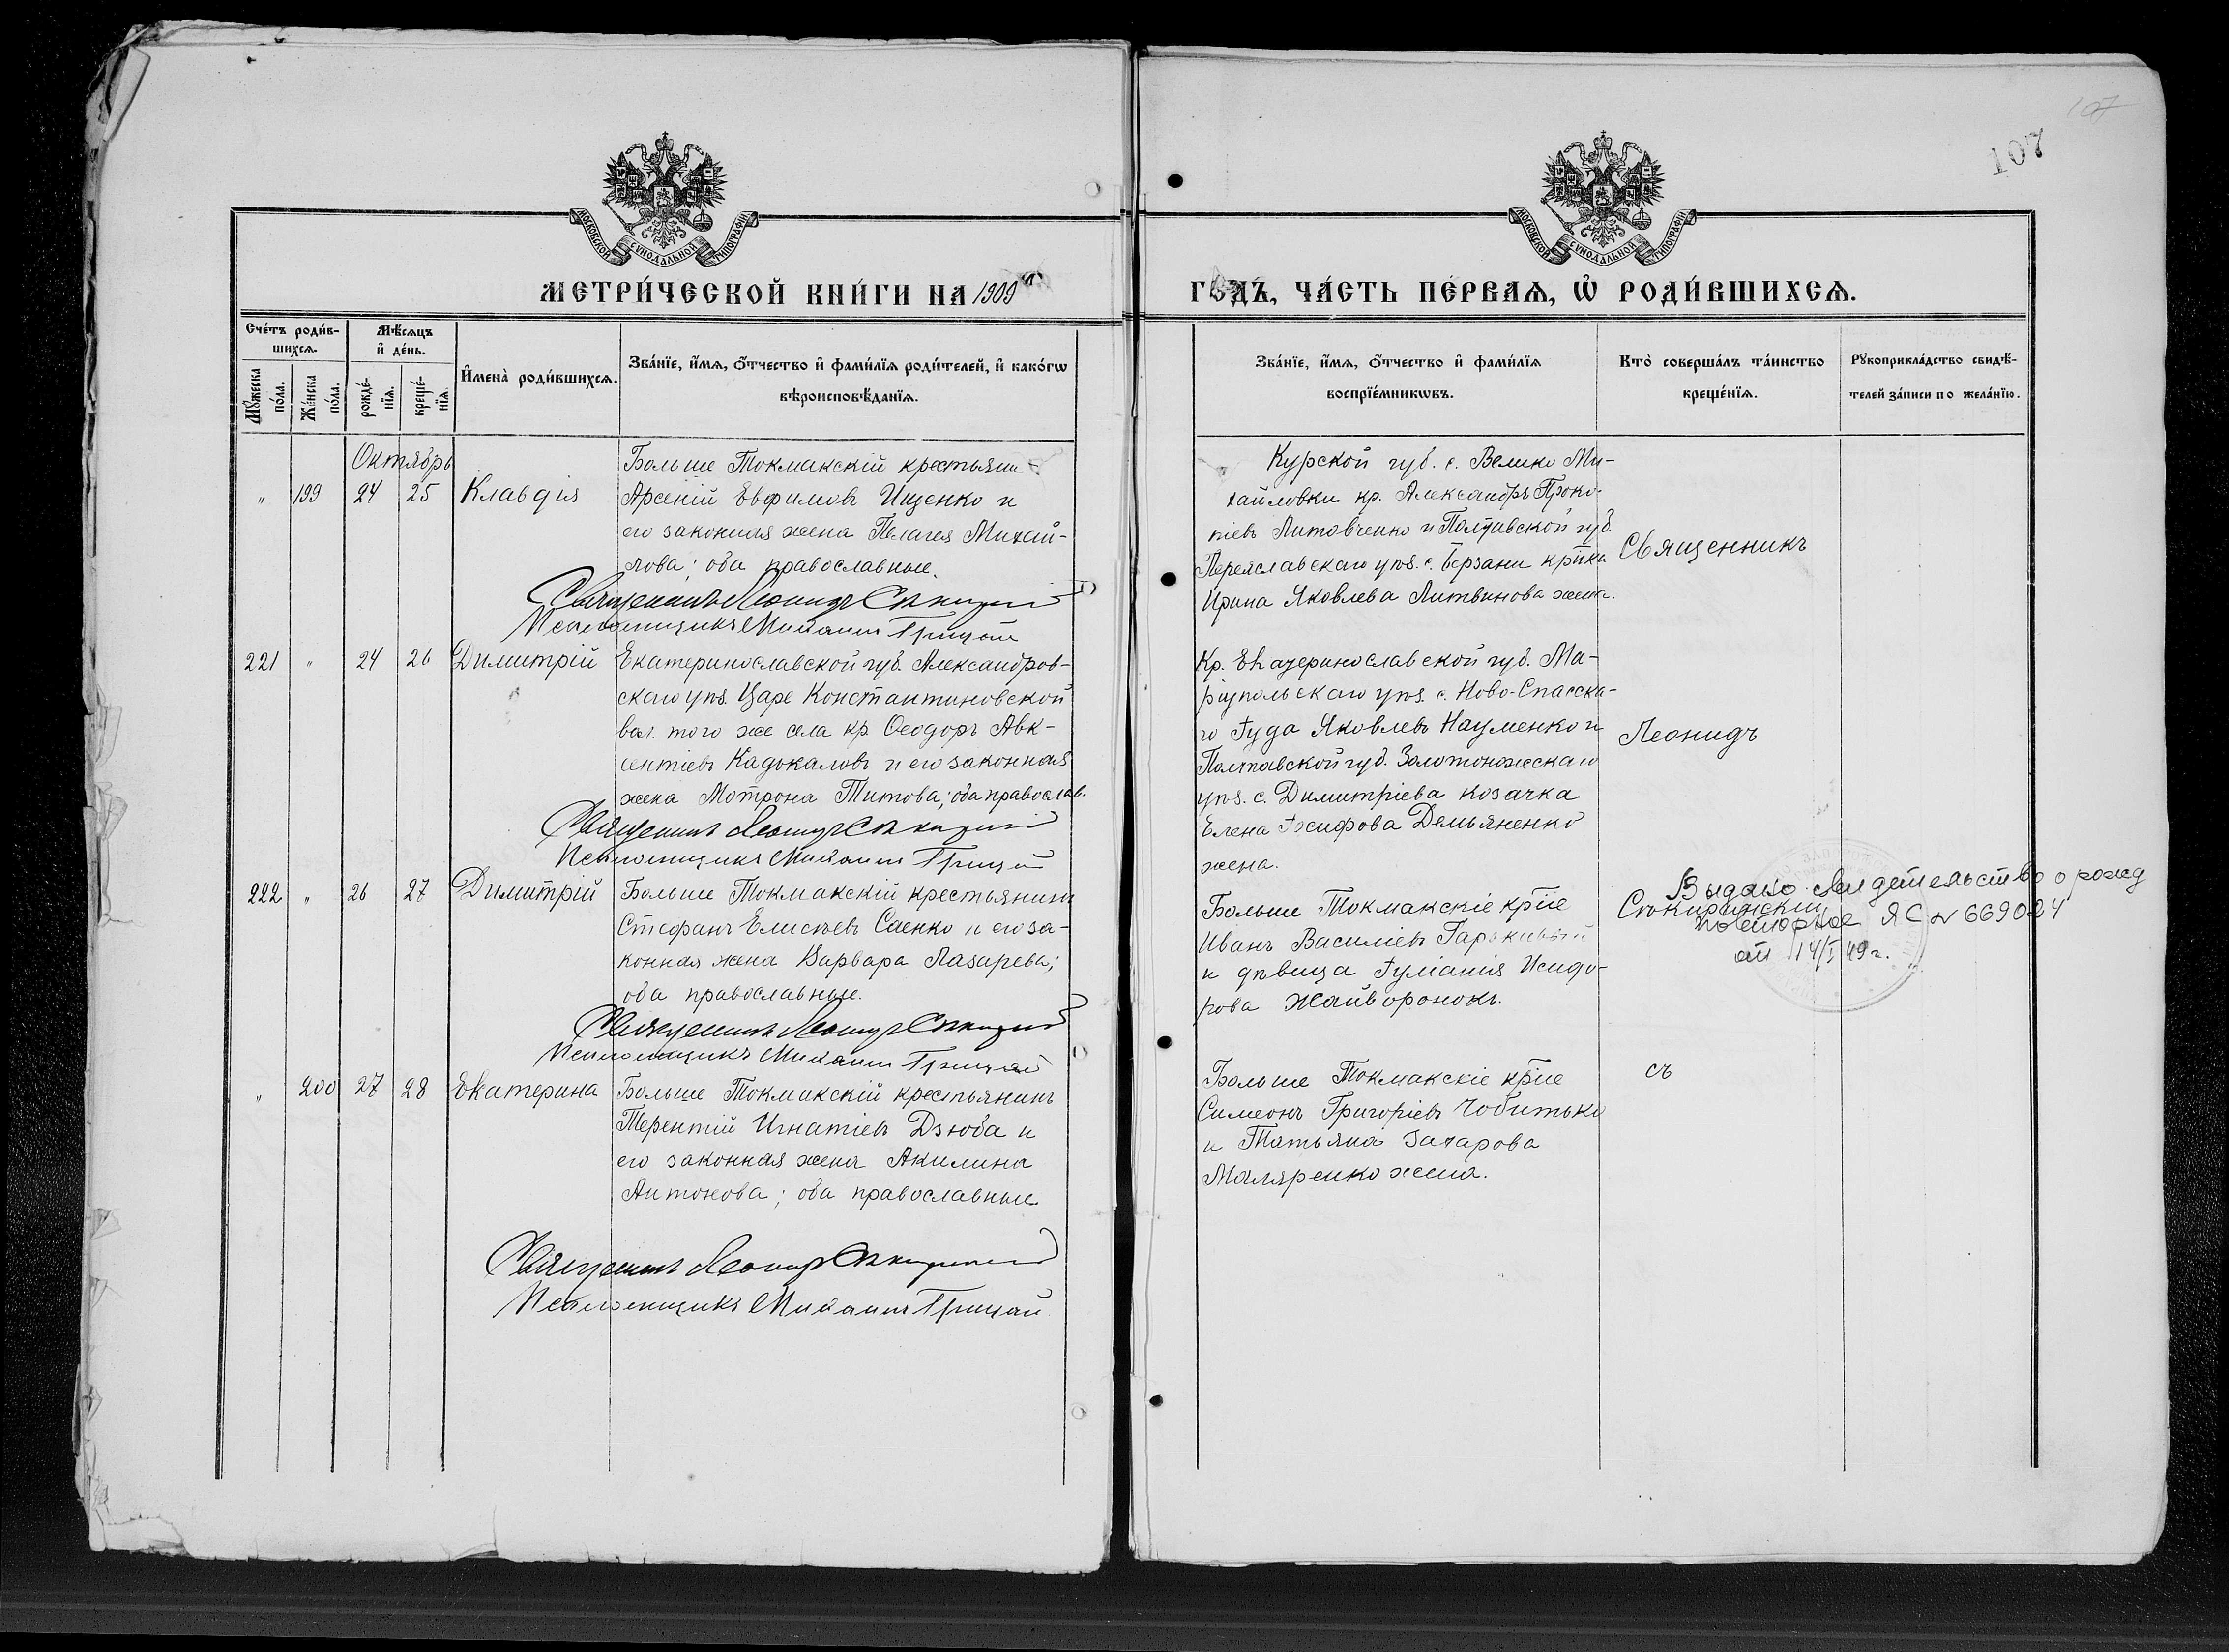 107
107
МОСКОВСКОЙ СУНОДАЛЬНОЙ ТИПОГРАФІИ
МОСКОВСКОЙ СУНОДАЛЬНОЙ ТИПОГРАФІИ
МЕТРИ́ЧЕСКОЙ КНИ́ГИ НА 1909
ГОДЪ, ЧА́СТЬ ПЕ́РВАѦ, Ѡ РОДИ́ВШИХСѦ.
Сче́тъ роди́в-
шихсѧ.
Мѣ́сѧцъ
и҆ де́нь.
Мꙋ́жеска
по́ла.
Же́нска
по́ла.
рожде́-
нїѧ.
креще́-
нїѧ.
И҆мена̀ роди́вшихсѧ.
Зва́нїе, и҆́мѧ, ѻ҆́тчество и҆ фами́лїѧ роди́телей, и҆ како́гѡ
вѣроисповѣ́данїѧ.
Зва́нїе, и҆́мѧ, ѻ҆́тчество и҆ фами́лїѧ
воспрїе́мникѡвъ.
Кто̀ соверша́лъ та́инство
креще́нїѧ.
Рꙋкоприкла́дство свидѣ́-
телей за́писи по жела́нїю.
Октябрь
" 199 24 25 Клавдія
Больше Токмакскій крестьянин
Арсеній Евфимовъ Ищенко и
его законная жена Пелагея Михай-
лова; оба православные.
Священникъ Леонидъ
Псаломщикъ Михаилъ Грицай
Курской губ. с. Велико Ми-
хайловки кр. Александръ Проко-
піевъ Литовченко и Полтавской губ.
Переяславскаго уѣз. с. Берзани кр-ка
Ирина Яковлева Литвинова жена.
Священникъ
221 " 24 26 Димитрій
Екатеринославской губ. Александров-
скаго уѣз. Царе Константиновской
вол. того же села кр. Ѳеодоръ Авк-
сентіевъ Кадькаловъ и его законная
жена Мотрона Титова; оба православ.
Священникъ Леонидъ
Псаломщикъ Михаилъ Грицай
Кр. Екатеринославской губ. Ма-
ріупольскаго уѣз. с. Ново-Спасска-
го Іуда Яковлевъ Науменко и
Полтавской губ. Золотоножскаго
уѣз. с. Димитріева козачка
Елена Іосифова Демьяненко
жена.
Леонидъ
222 " 26 27 Димитрій
Больше Токмакскій крестьянинъ
Стефанъ Елисѣевъ Саенко и его за-
конная жена Варвара Лазарева;
оба православные.
Священникъ Леонидъ
Псаломщикъ Михаилъ Грицай
Больше Токмакскіе кр-не
Иванъ Василіевъ
и дѣвица Іуліанія Исидо-
рова Жайворонокъ.
Выдано свидетельство о рожд
повторное ЯС № 669024
от 14/I 49 г.
" 200 27 28 Екатерина
Больше Токмакскій крестьянинъ
Терентій Игнатіевъ Дзюба и
его законная жена Акилина
Антонова; оба православные
Священникъ Леонидъ
Псаломщикъ Михаилъ Грицай
Больше Токмакскіе кр-не
Симеонъ Григоріевъ Чобитько
и Татьяна Захарова
Маляренко жена.
съ